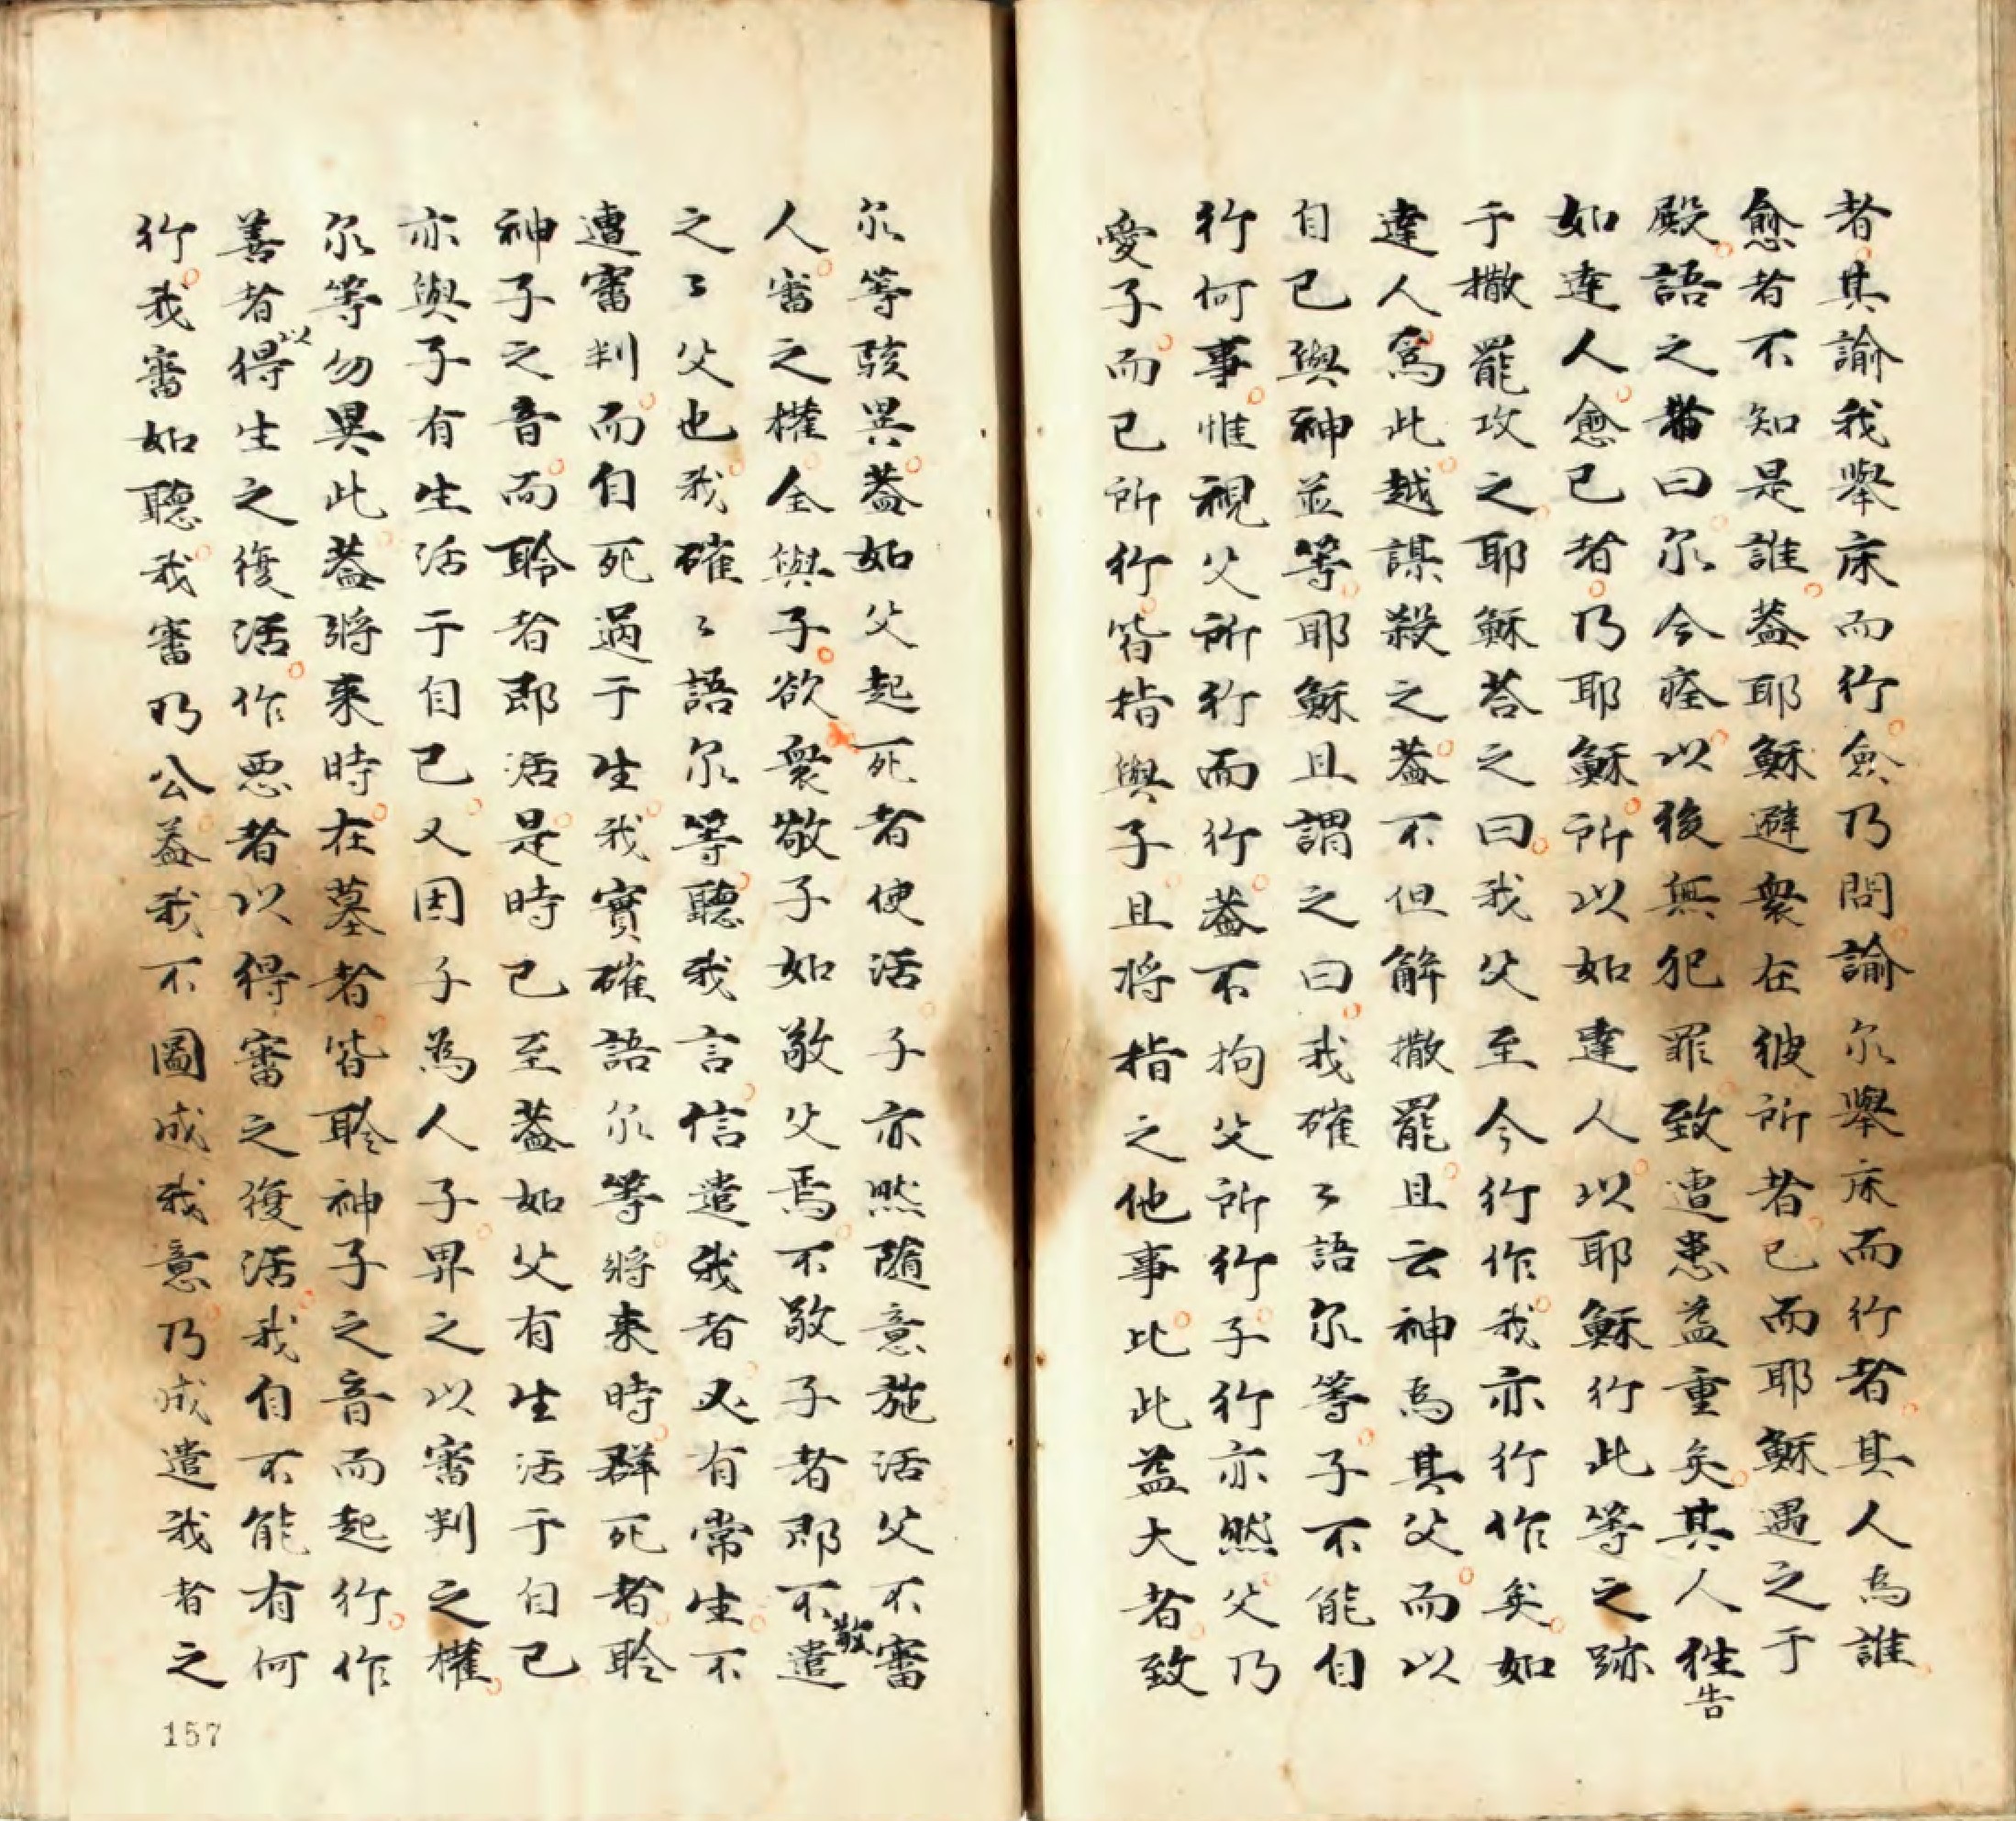 者其諭我舉床而行僉乃問諭尔舉床而行者其人為誰
愈者不知是誰葢耶穌避衆在彼所者已而耶穌遇之于
殿語之者曰尔今痊以後無犯罪致遭患益重矣其人往告
如達人愈已者乃耶穌所以如達人以耶穌行此等之跡
于撒罷攻之耶穌荅之曰我父至今行作我亦行作矣如
達人為此越謀殺之葢不但解撒罷且云神為其父而以
自已與神並等耶穌且謂之曰我確〻語尔等子不能自
行何事惟視父所行而行葢不拘父所行子行亦然父乃
愛子而已所行皆指與子且将指之他事比此益大者致
尔等駭異葢如父起死者使活子亦然随意施活父不審
人審之權全與子欲衆敬子如敬父焉不敬子者即不敬遣
之〻父也我確〻語尔等聽我言信遣我者又有常生不
遭審判而自死過于生我實確語尔等將来時群死者聆
神子之音而聆者即活是時已至葢如父有生活于自已
亦與子有生活于自已又因子為人子畀之以審判之權
尔等勿異此葢將来時在墓者皆聆神子之音而起行作
善者以得生之復活作惡者以得審之復活我自不能有何
行我審如聽我審乃公葢我不圖成我意乃成遣我者之
157